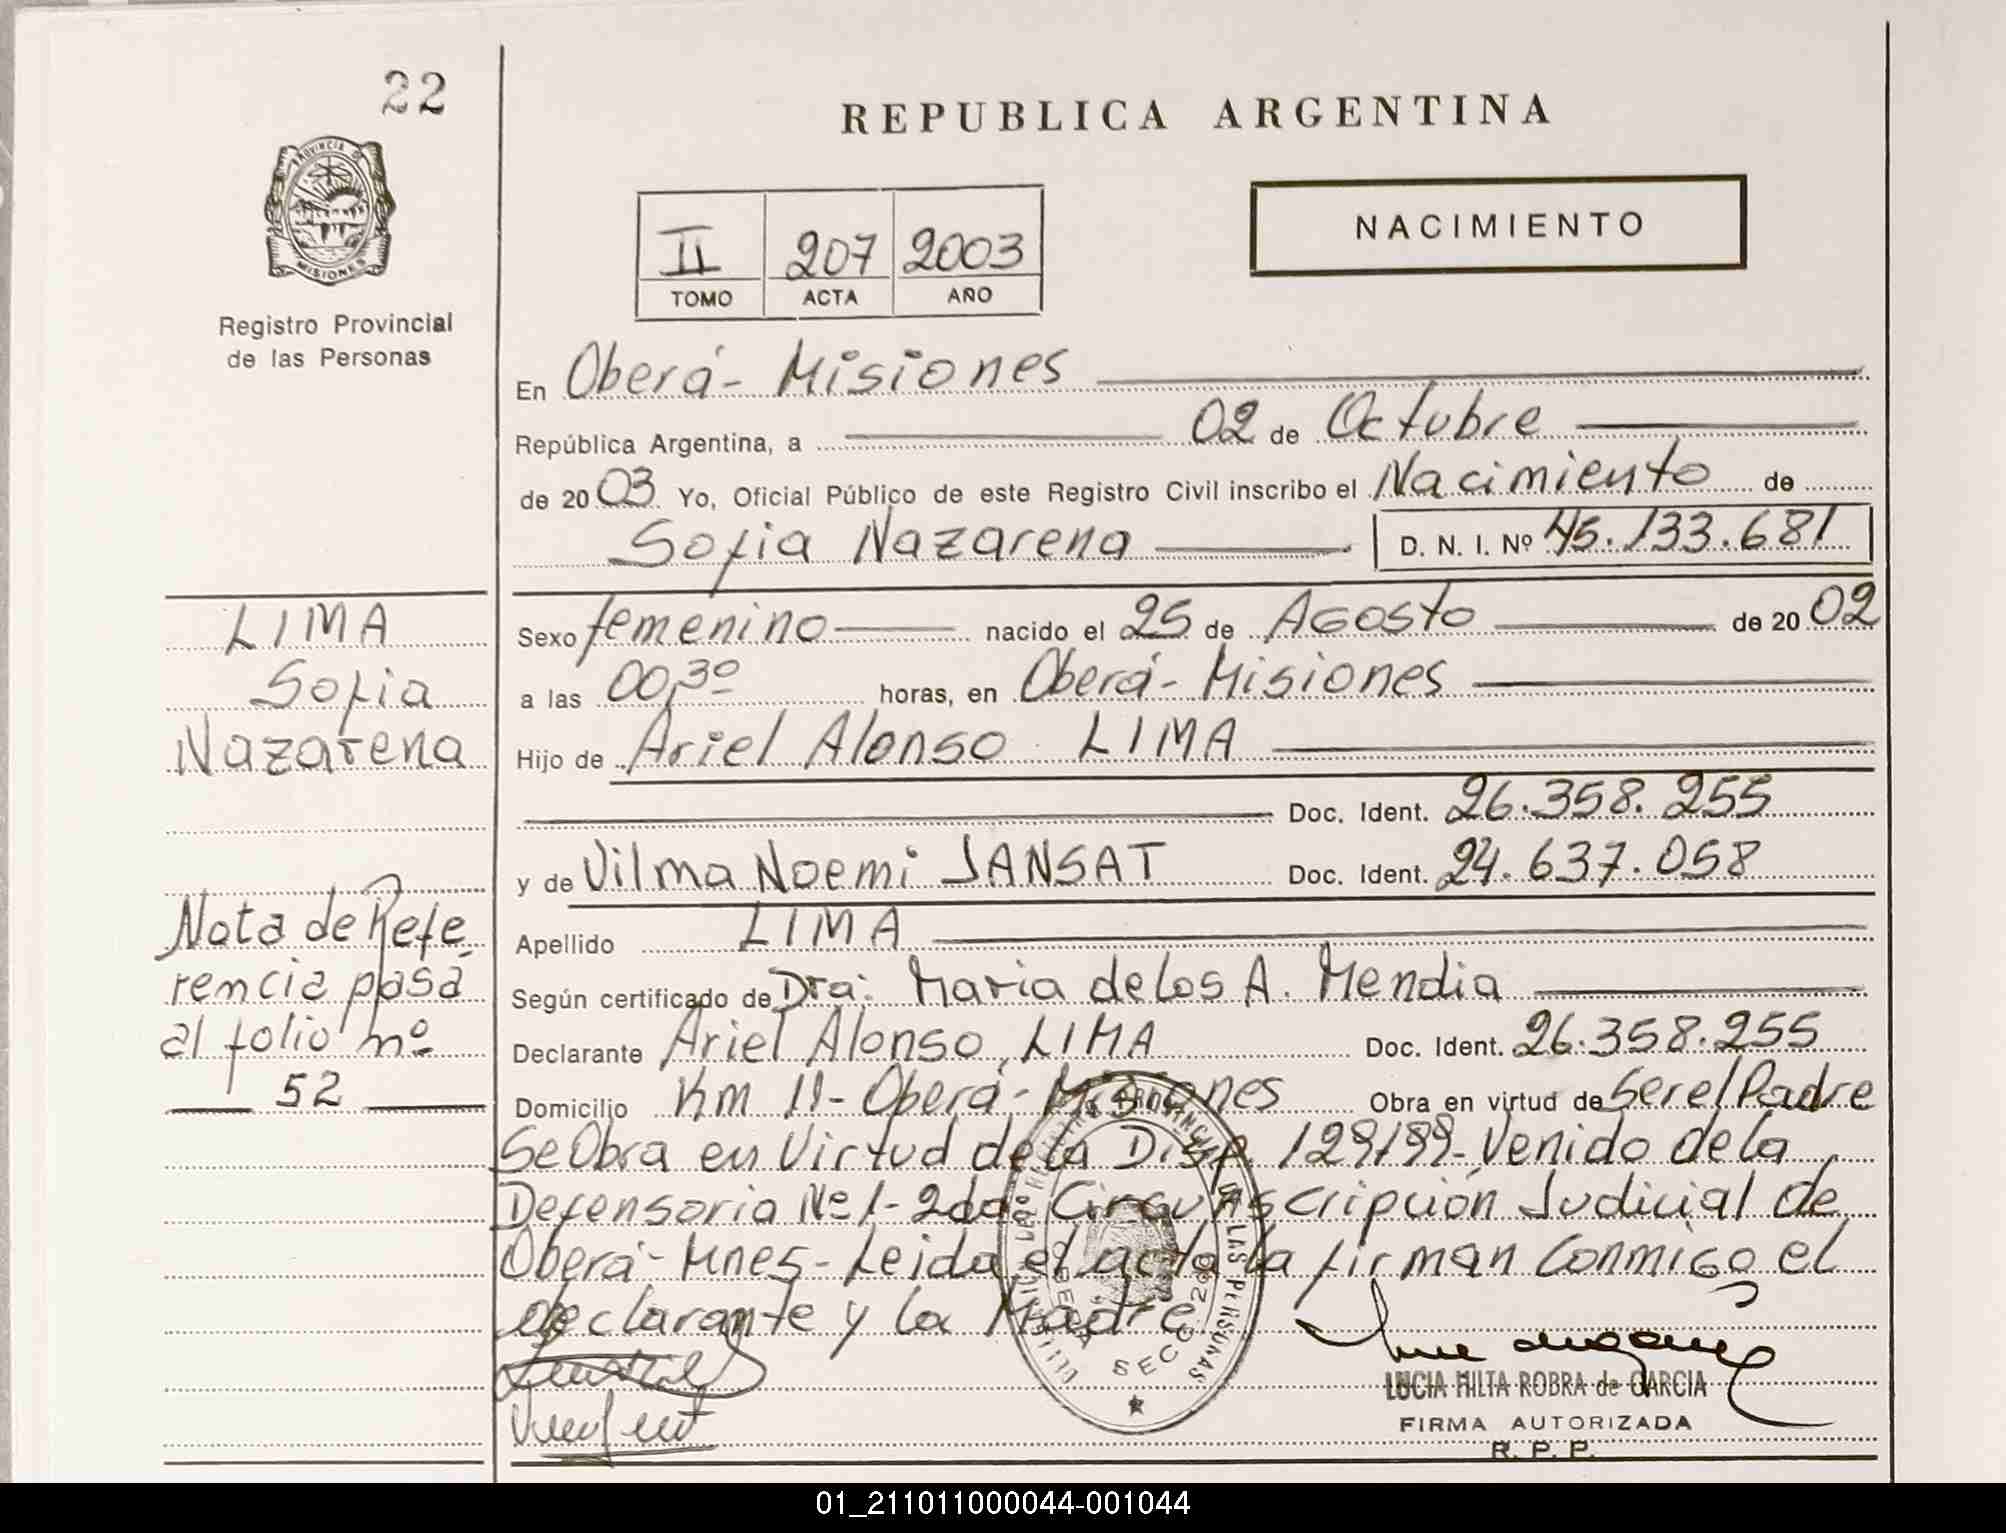 22
REPUBLICA ARGENTINA
PROVINCIA DE
MISIONES
Registro Provincial
de las Personas
NACIMIENTO
II 207 2003
TOMO ACTA AÑO
En Oberá - Misiones
República Argentina, a 02 de Octubre
de 2003 Yo, Oficial Público de este Registro Civil inscribo el Nacimiento de
Sofia Nazarena D. N. I. Nº 45.133.681
LIMA
Sofia
Nazarena
Sexo femenino nacido el 25 de Agosto de 2002
a las 00,30 horas, en Oberá - Misiones
Hijo de Ariel Alonso LIMA
Doc. Ident. 26.358.255
y de Vilma Noemi JANSAT Doc. Ident. 24.637.058
Apellido LIMA
Según certificado de Dra: Maria de los A. Mendia
Declarante Ariel Alonso, LIMA Doc. Ident. 26.358.255
Domicilio Km 11 - Oberá - Misiones Obra en virtud de Ser el Padre
Se Obra en Virtud de la Disp. 129/99 - Venido de la
Defensoria Nº 1 - 2da Circunscripción Judicial de
Oberá - Mnes - Leida el acta la firman Conmigo el
declarante y la Madre
Nota de Refe
rencia pasa
al folio nº
52
LAS PERSONAS
SECC
LUCIA HILTA ROBRA de GARCIA
FIRMA AUTORIZADA
R. P. P.
01_211011000044-001044